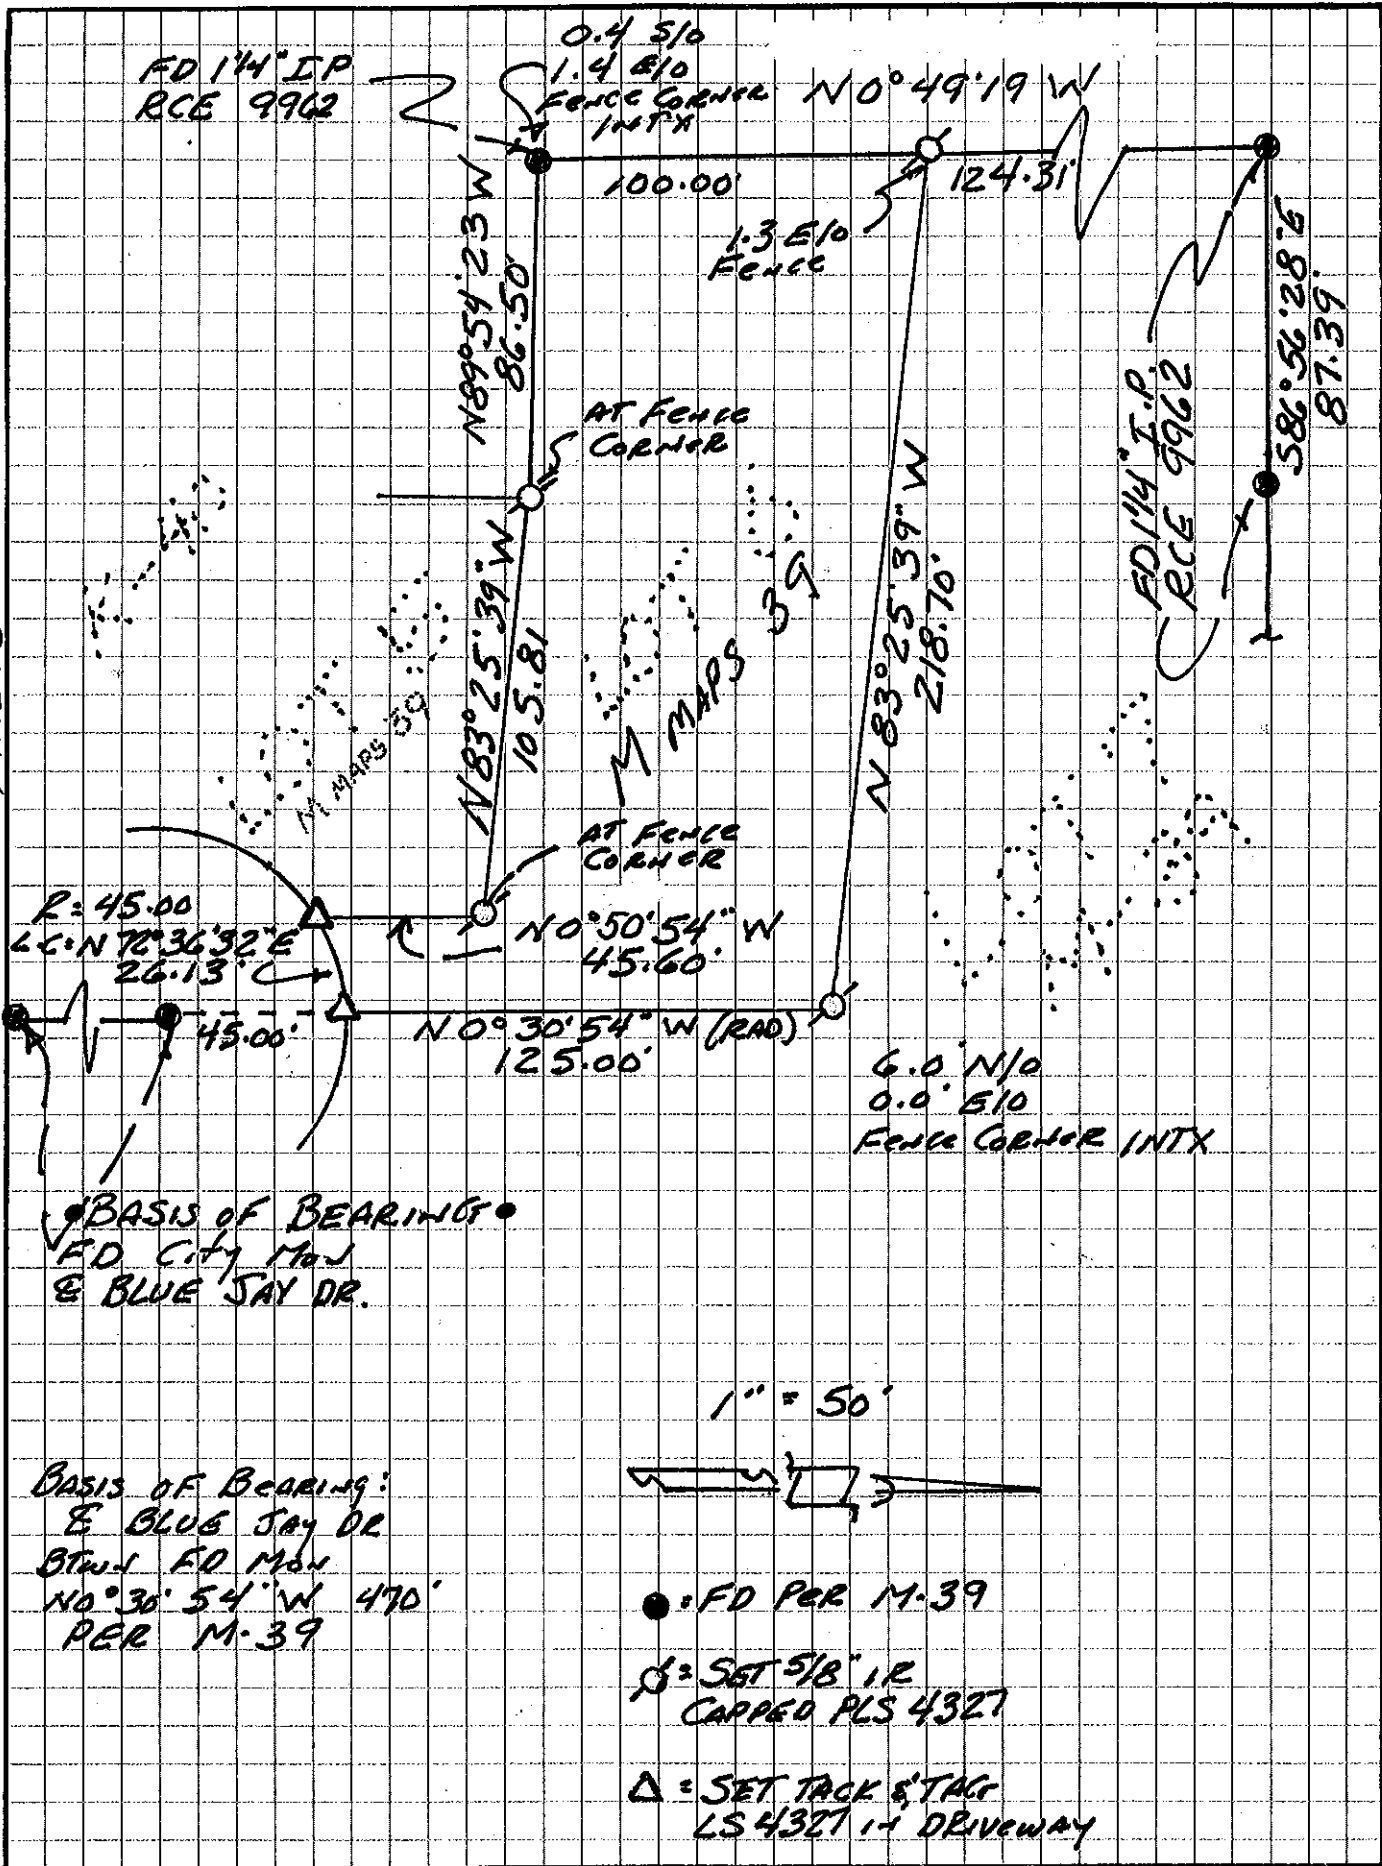 0.4 S/o
1.4 E/o
FENCE CORNER
INTX
FD 1 1/4" I P
RCE 9962
N 0° 49' 19 W
100.00'
124.31'
1.3 E/o
FENCE
N89° 54' 23 W
86.50'
S86° 56' 28" E
87.39'
FD 1 1/4" I.P.
RCE 9962
AT FENCE
CORNER
N83° 25' 39" W
105.81
M MAPS 39
M MAPS 39
N 83° 25' 39" W
218.70'
AT FENCE
CORNER
R = 45.00
L.C. = N 72° 36' 32" E
26.13'
N 0° 50' 54" W
45.60'
45.00'
N 0° 30' 54" W (RAD)
125.00'
6.0 N/o
0.0' E/o
FENCE CORNER INTX
BASIS OF BEARING
FD City Mon
℄ BLUE JAY DR.
1" = 50'
BASIS OF BEARING:
℄ BLUE JAY DR
BTWN FD MON
N0° 30' 54" W 470'
PER M-39
= FD PER M-39
= SET 5/8" IR
CAPPED PLS 4327
Δ = SET TACK & TAG
LS 4327 IN DRIVEWAY